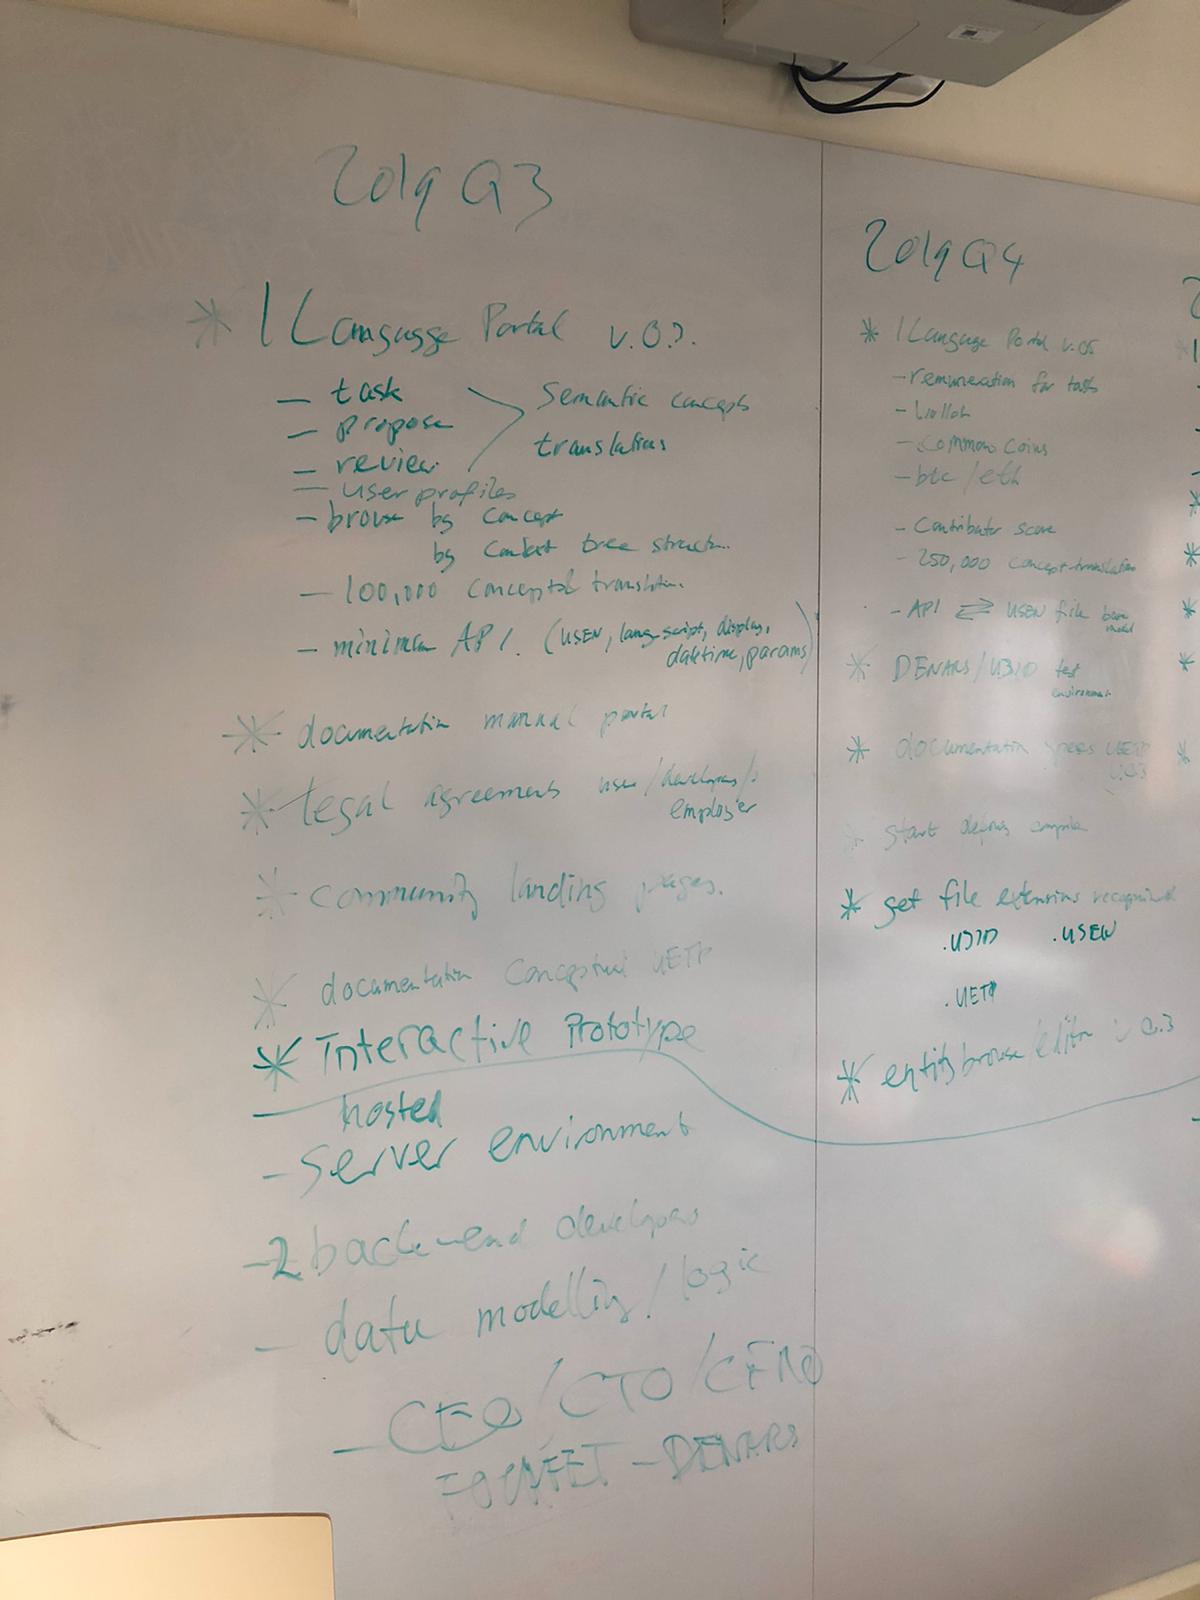 2019 Q3
* 1 Langugge Portal v.0.3.
- task
- propose
- review
semantic concepts
translations
- user profiles
- browse by concept
by context tree structur.
- 100,000 conceptal translation.
- minimum API. (USEN, lang-script, display,
datetime, params)
* documentation manual portal
* legal agreements user/developers/
employer
* community landing pages.
* documentation Conceptual UETP
* Interactive Prototype
- hosted
- Server environment
- 2 back-end developers
- data modelling/logic
- CEO/CTO/
- DENARS
2019 Q4
* 1 Language Portal v.05
- remuneration for tasks
- Wallet
- common coins
- btc/eth
- Contributor score
- 250,000 concept-translation
- API ⇄ USEN file base
model
* DENARS/U3ID test
environment
* documentation specs UETP
v.0.3
* start defining
* get file extensions recognized
.U3ID .USEN
.UETP
* entity browse/editor v 0.3